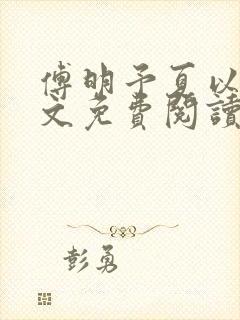 傅明予夏以
文免费閱讀
彭勇